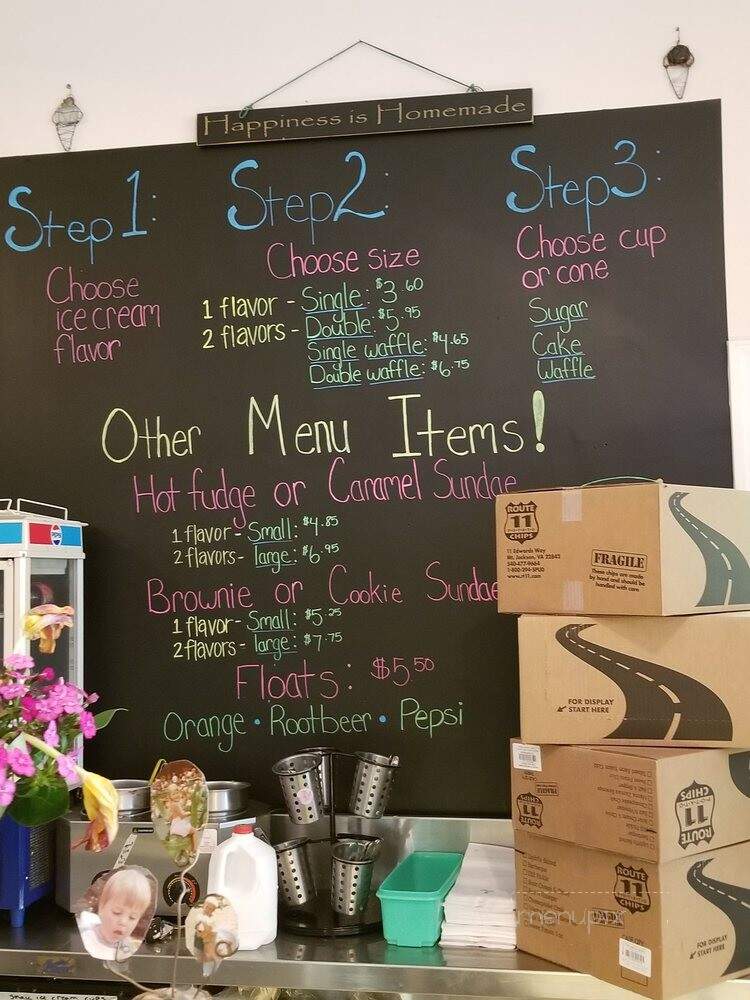 Happiness is Homemade
Step 1:
Choose
ice cream
flavor
Step 2:
Choose size
1 flavor - Single: $3.60
2 flavors - Double: $5.95
Single waffle: $4.65
Double waffle: $6.75
Step 3:
Choose cup
or cone
Sugar
Cake
Waffle
Other Menu Items!
Hot fudge or Caramel Sundae
1 flavor - Small: $4.85
2 flavors - large: $6.95
Brownie or Cookie Sundae
1 flavor - Small: $5.25
2 flavors - large: $7.75
Floats: $5.50
Orange • Rootbeer • Pepsi
ROUTE
11
CHIPS
11 Edwards Way
Mt. Jackson, VA 22842
540-477-9664
1-800-294-SPUD
www.rt11.com
FRAGILE
These chips are made
by hand and should be
handled with care
FOR DISPLAY
START HERE
ROUTE
11
CHIPS
ROUTE
11
CHIPS
FOR DISPLAY
START HERE
menupix
small ice cream cups